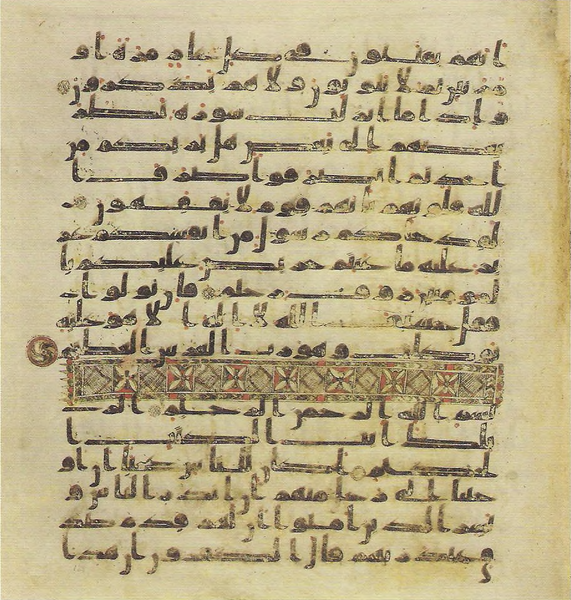 انهم يفتنون في كل عام مرة او
مرتين ثم لا يتوبون ولا هم يذكرون
واذا ما انزلت سورة نظر
بعضهم الى بعض هل يريكم من
احد ثم انصرفوا صرف ا
لله قلوبهم بانهم قوم لا يفقهون
لقد جاكم رسول من انفسكم عز
يز عليه ما عنتم حريص عليكم با
لمومنين روف رحيم فان تولوا
فقل حسبي الله لا اله الا هو عليه
توكلت وهو رب العرش العظيم
بسم الله الرحمن الرحيم الر
تلك ايت الكتب ا
لحكيم اكان للناس عجبا ان او
حينا الى رجل منهم ان انذر الناس و
بشر الذين امنوا ان لهم قدم صد
ق عند ربهم قال الكفرون ان هذا